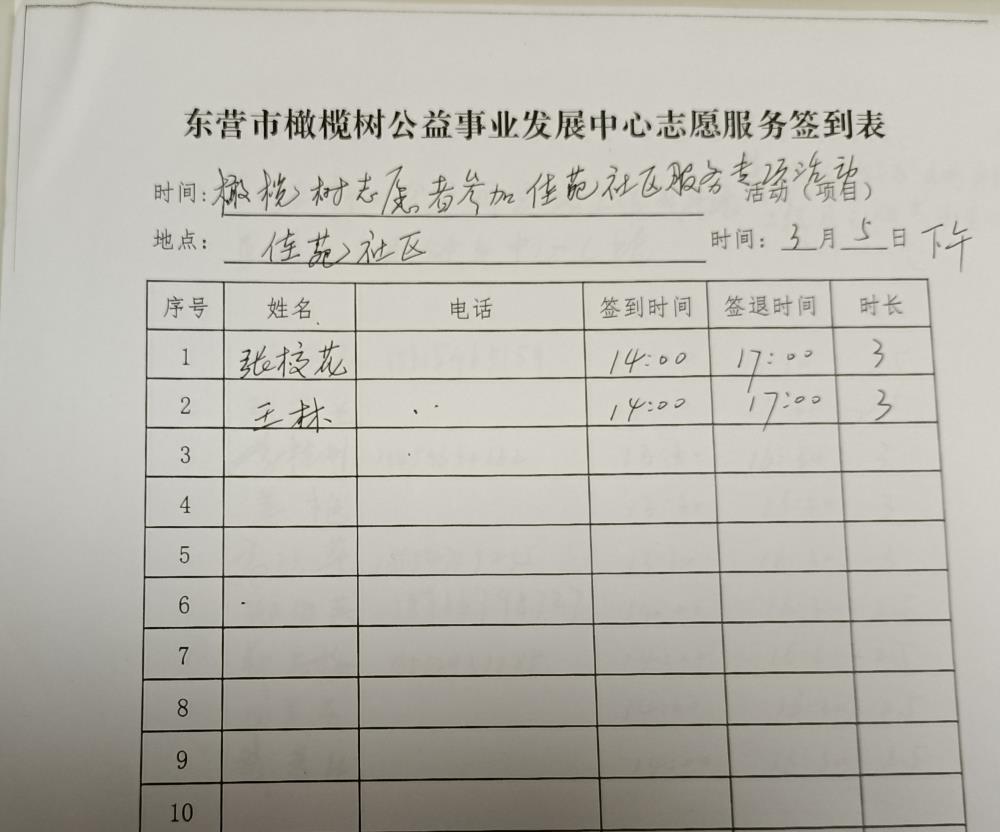 东营市橄榄树公益事业发展中心志愿服务签到表
时间:橄榄树志愿者参加佳苑社区服务专项活动 活动(项目)
地点: 佳苑社区 时间: 3 月 5 日 下午
序号 姓名 电话 签到时间 签退时间 时长
1 张校花 14:00 17:00 3
2 王林 14:00 17:00 3
3
4
5
6
7
8
9
10